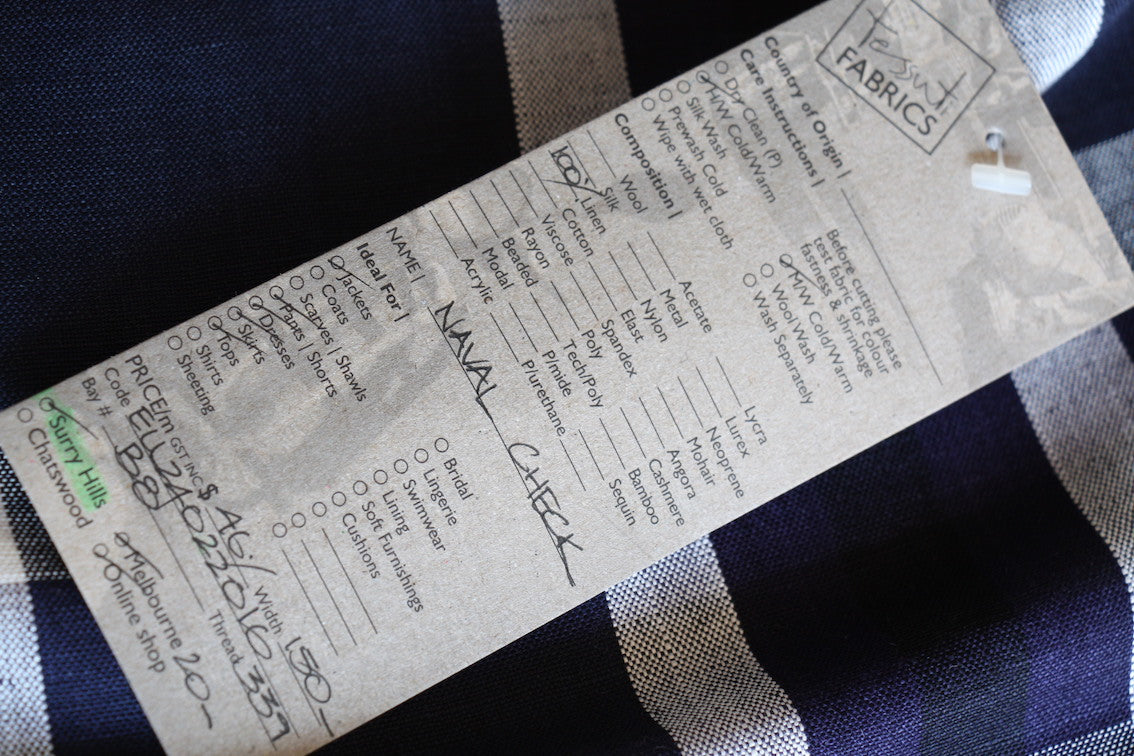 Tessuti
FABRICS
Country of Origin |
Care Instructions |
Dry Clean (P)
H/W Cold/Warm
Silk Wash
Prewash Cold
Wipe with wet cloth
Before cutting please
test fabric for colour
fastness & shrinkage
M/W Cold/Warm
Wool Wash
Wash Separately
Composition |
Wool
Silk
100% Linen
Cotton
Viscose
Rayon
Beaded
Modal
Acrylic
Acetate
Metal
Nylon
Elast
Spandex
Poly
Tech/Poly
P/mide
P/urethane
Lycra
Lurex
Neoprene
Mohair
Angora
Cashmere
Bamboo
Sequin
NAME | NAVAL CHECK
Ideal For |
Jackets
Coats
Scarves | Shawls
Pants | Shorts
Dresses
Skirts
Tops
Shirts
Sheeting
Bridal
Lingerie
Swimwear
Lining
Soft Furnishings
Cushions
PRICE/m GST INC $ 46/ Width 150-
Code EU2402201G
Bay # B8 Thread 339
Surry Hills
Chatswood
Melbourne 20-
Online shop